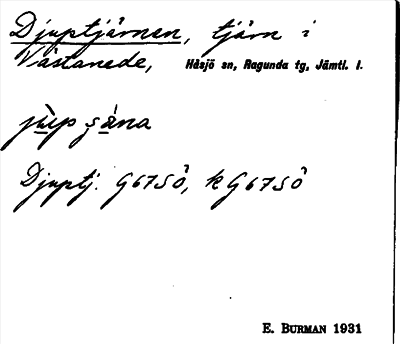 Djuptjärnen, tjärn i
Västanede, Håsjö sn, Ragunda tg, Jämtl. l.
Djuptj. G67SÖ, kG67SÖ
E. BURMAN 1931